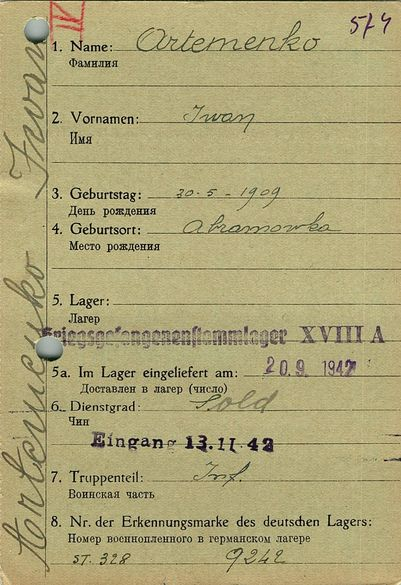 IV
574
1. Name: Artemenko
Фамилия
2. Vornamen: Iwan
Имя
3. Geburtstag: 30.5-1909
День рождения
4. Geburtsort: Abramowka
Место рождения
5. Lager:
Лагер
Kriegsgefangenenstammlager XVIII A
5a. Im Lager eingeliefert am: 20.9.1942
Доставлен в лагер (число)
6. Dienstgrad: Sold
Чин
Eingang 13.11.42
7. Truppenteil: Inf.
Воинская часть
8. Nr. der Erkennungsmarke des deutschen Lagers:
Номер военнопленного в германском лагере
ST. 328 9242
Artemenko Iwan